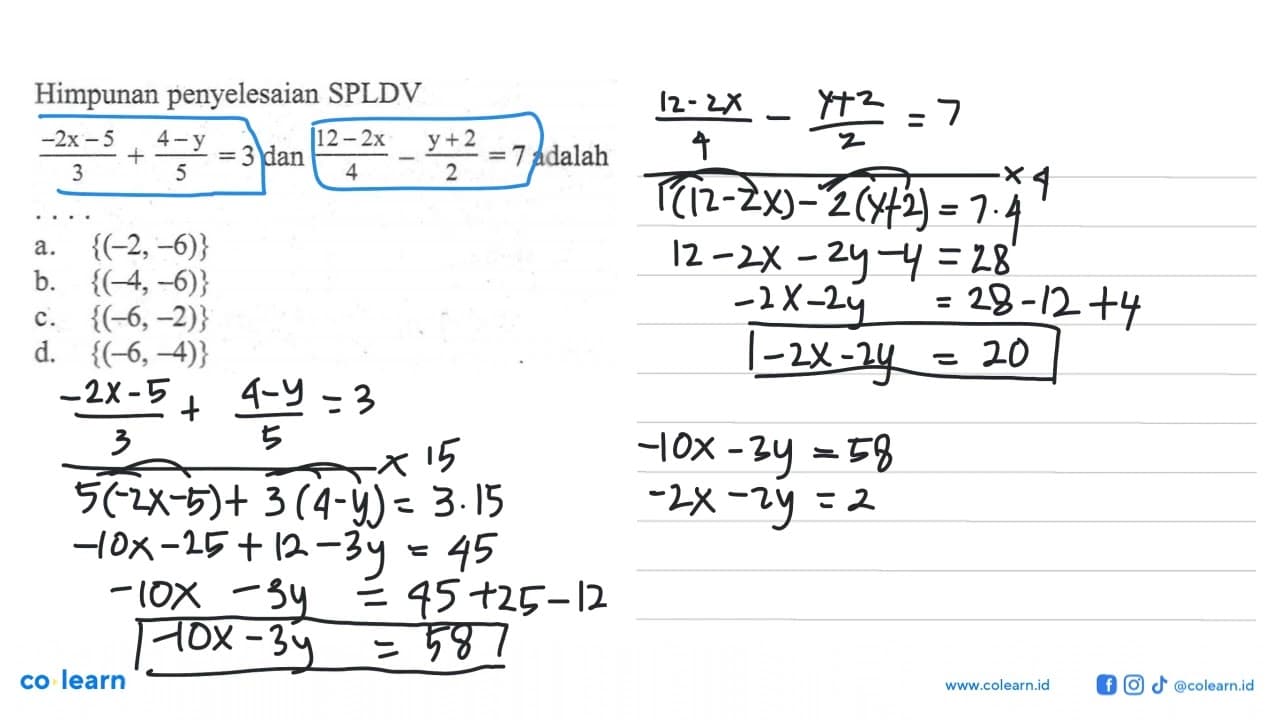 Himpunan penyelesaian SPLDV
(-2x-5)/3 + (4-y)/5 = 3 dan (12-2x)/4 - (y+2)/2 = 7 adalah
....
a. {(-2, -6)}
b. {(-4, -6)}
c. {(-6, -2)}
d. {(-6, -4)}
(-2x-5)/3 + (4-y)/5 = 3
x 15
5(-2x-5)+ 3(4-y) = 3.15
-10x-25+12-3y = 45
-10x -3y = 45+25-12
-10x-3y = 58
(12-2x)/4 - (y+2)/2 = 7
x 4
1(12-2x)-2(y+2) = 7.4
12-2x-2y-4 = 28
-2x-2y = 28-12+4
-2x-2y = 20
-10x-3y = 58
-2x-2y = 2
co learn
www.colearn.id
@colearn.id